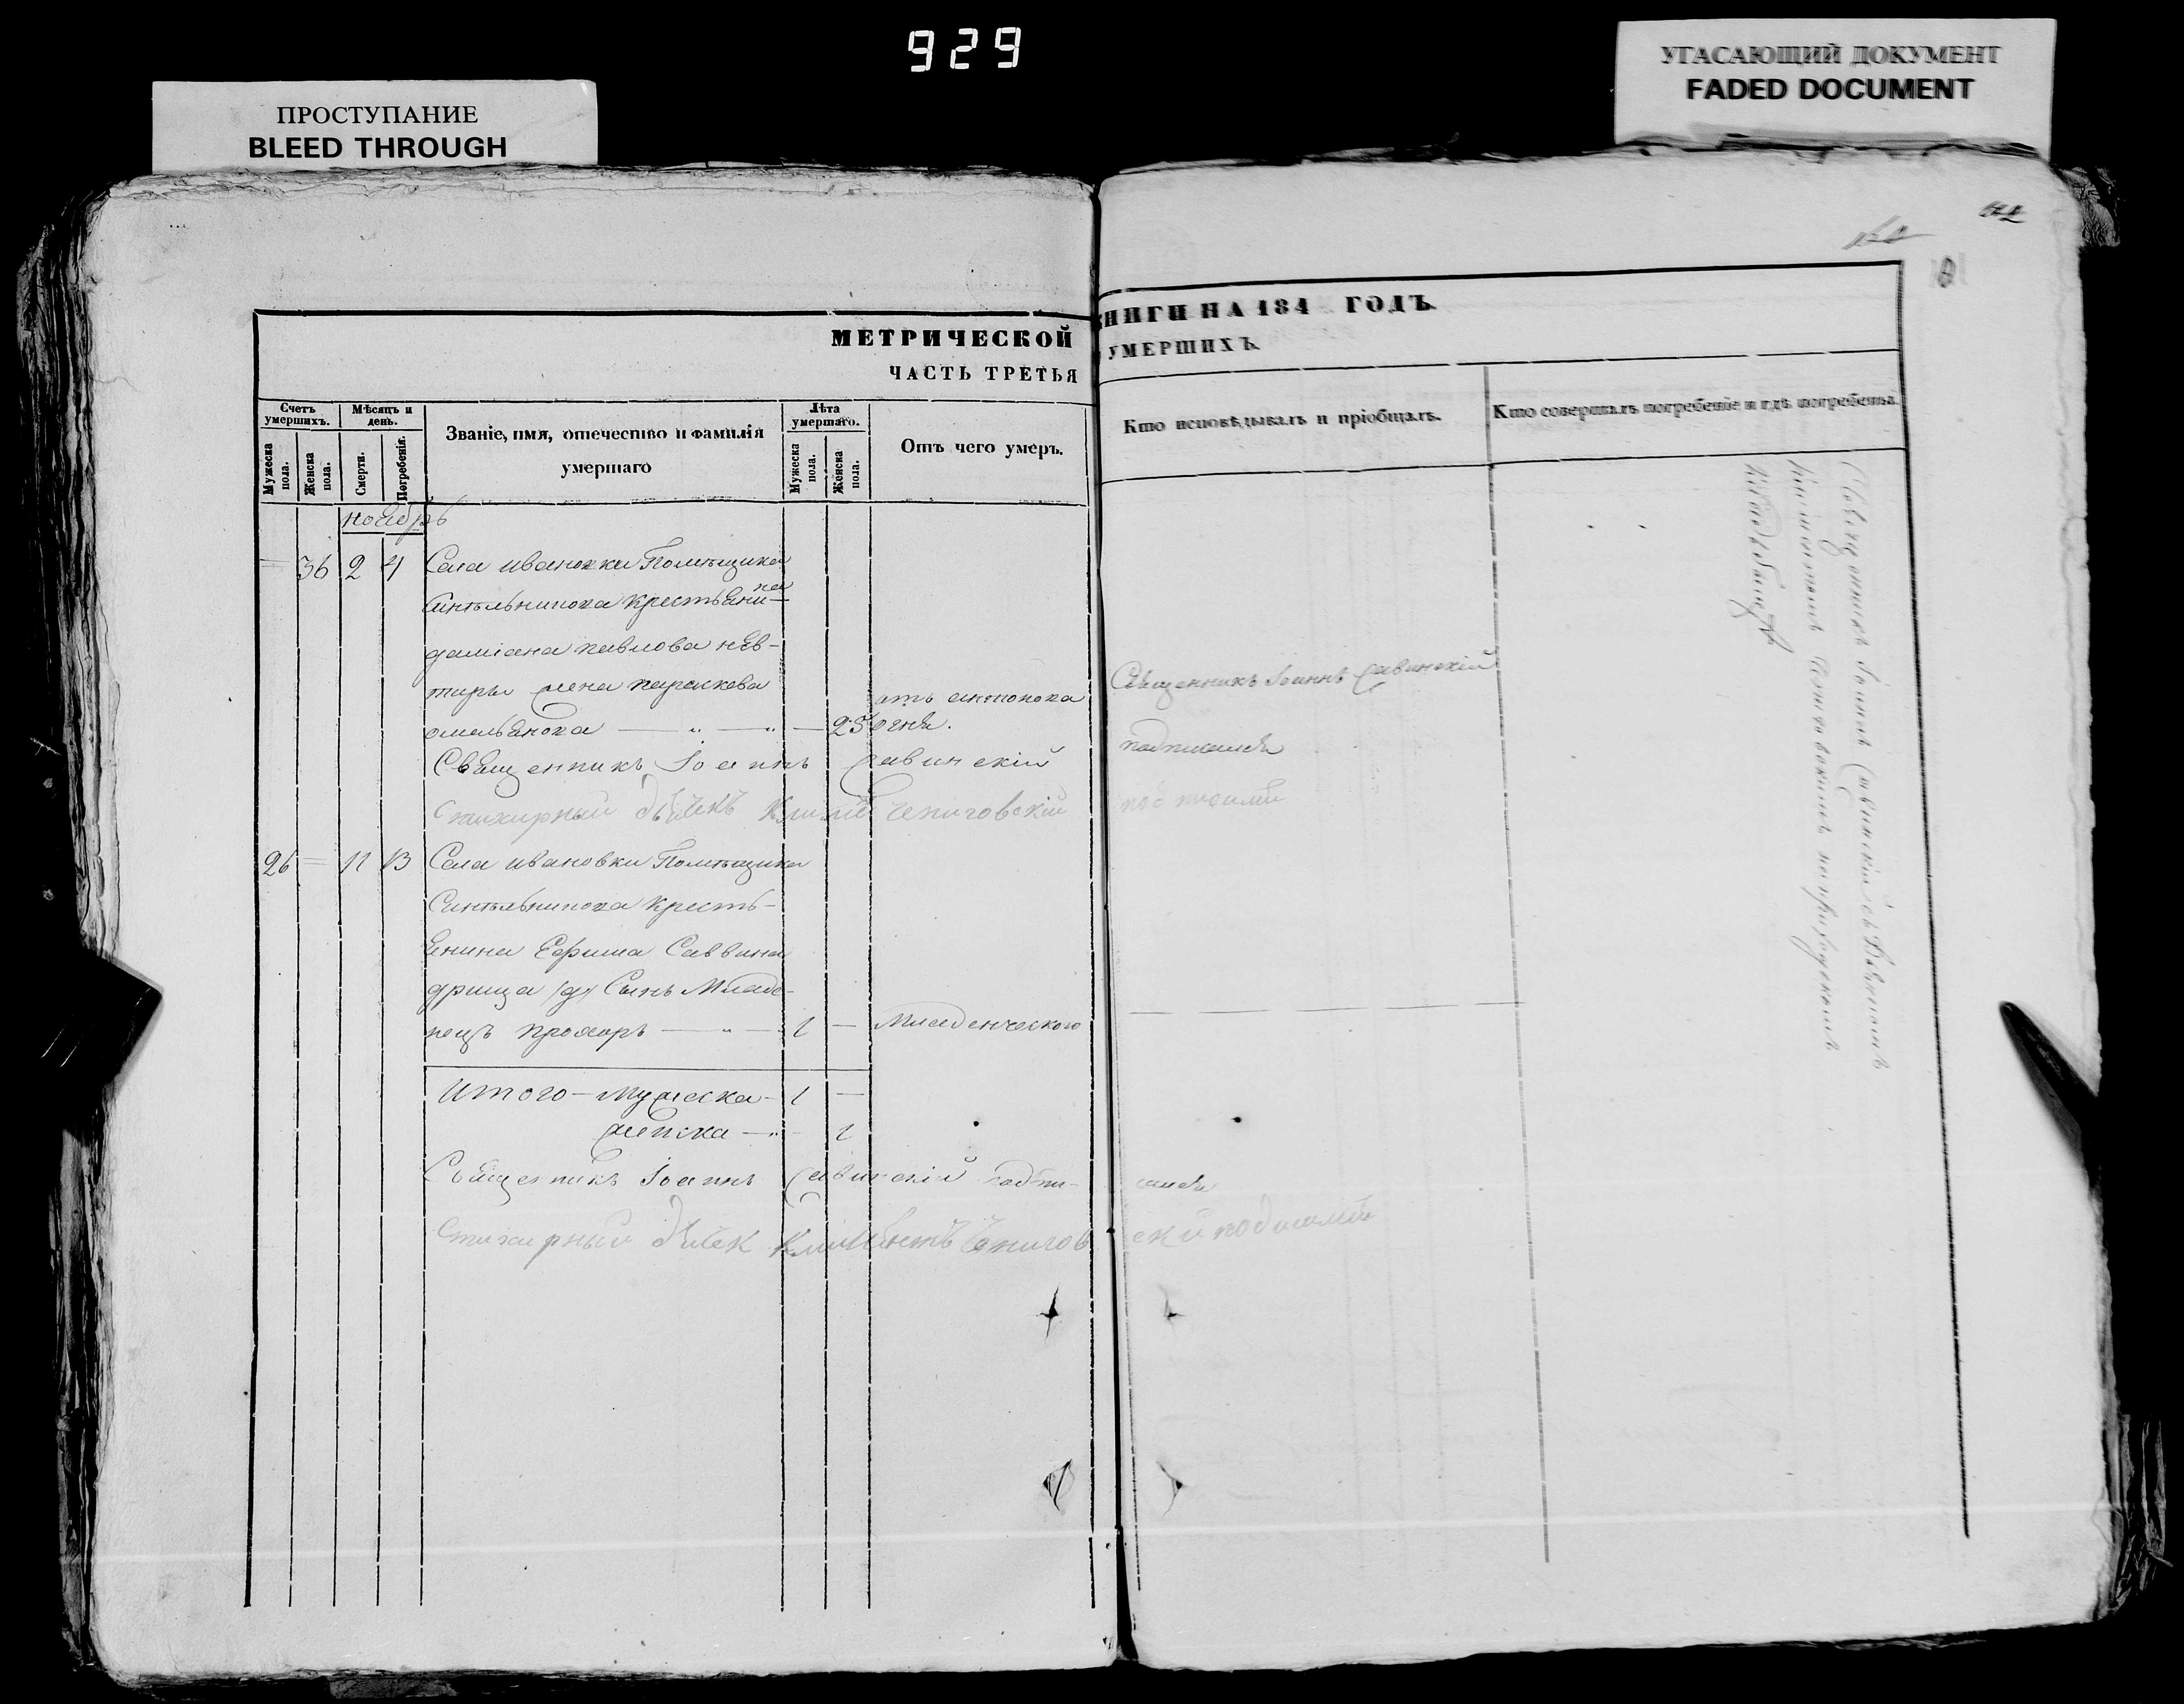 929
ПРОСТУПАНИЕ
BLEED THROUGH
УГАСАЮЩИЙ ДОКУМЕНТ
FADED DOCUMENT
МЕТРИЧЕСКОЙ
КНИГИ НА 184 ГОДЪ.
ЧАСТЬ ТРЕТЬЯ
УМЕРШИХЪ.
Счетъ умершихъ.
Мужеска пола.
Женска пола.
Мѣсяцъ и день.
Смерти.
Погребенія.
Званіе, имя, отечество и фамилія
умершаго
Лѣта умершаго.
Мужеска пола.
Женска пола.
Отъ чего умеръ.
Кто исповѣдывалъ и пріобщалъ.
Кто совершалъ погребеніе и гдѣ погребены.
ноябрь
36 2 4 Села ивановки Помѣщика
Синѣльникова крестьяни-
на
даміана павлова
жена параскева
омельянова 25
отъ антонова
огня.
Священникъ Іоаннъ Савинскій
подписался
Священникъ Іоаннъ Савинскій
Стихарный дьячекъ Климъ Чениговскій
26 11 13 Села ивановки Помѣщика
Синѣльникова кресть-
янина Ефима Саввина
Сынъ Младе-
нецъ прохоръ 1 — Младенческою
Итого — мужеска — 1 —
женска — 1
Священникъ Іоаннъ Савинскій подпи-
сался
Стихарный Климентъ Чениговский
Священникъ Іоаннъ Савинскій съ дьячкомъ
Климентомъ на приходскомъ
кладбищѣ